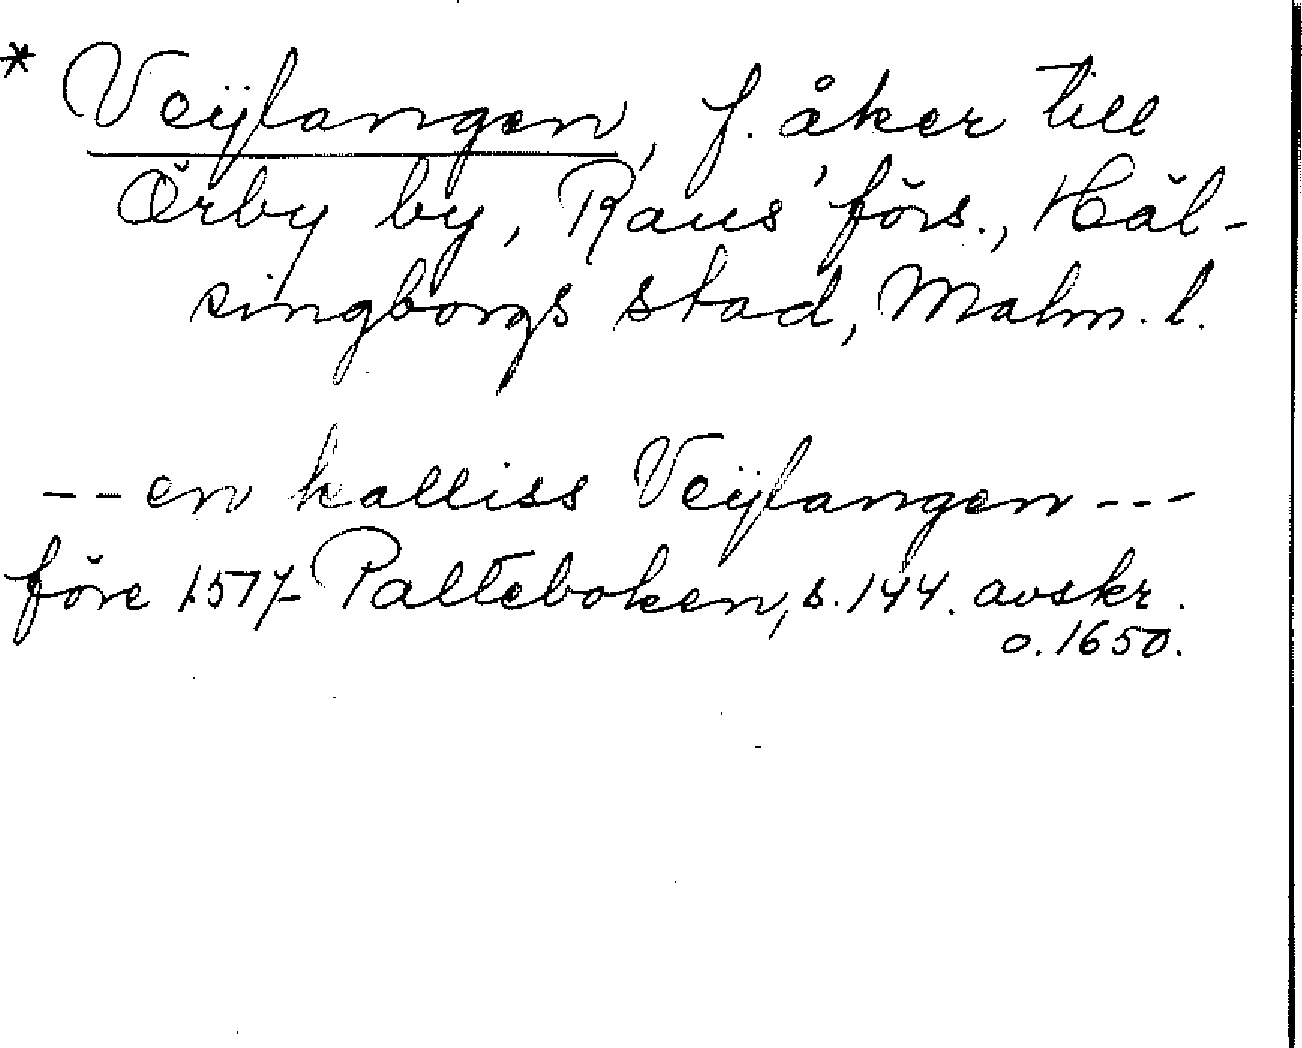 * Veÿlangen, f. åker till
Örby by, Raus' förs., Häl-
singborgs stad, Malm. l.
-- en kalliss Veÿlangen ---
före 1577 Palteboken, s. 144. avskr.
o. 1650.